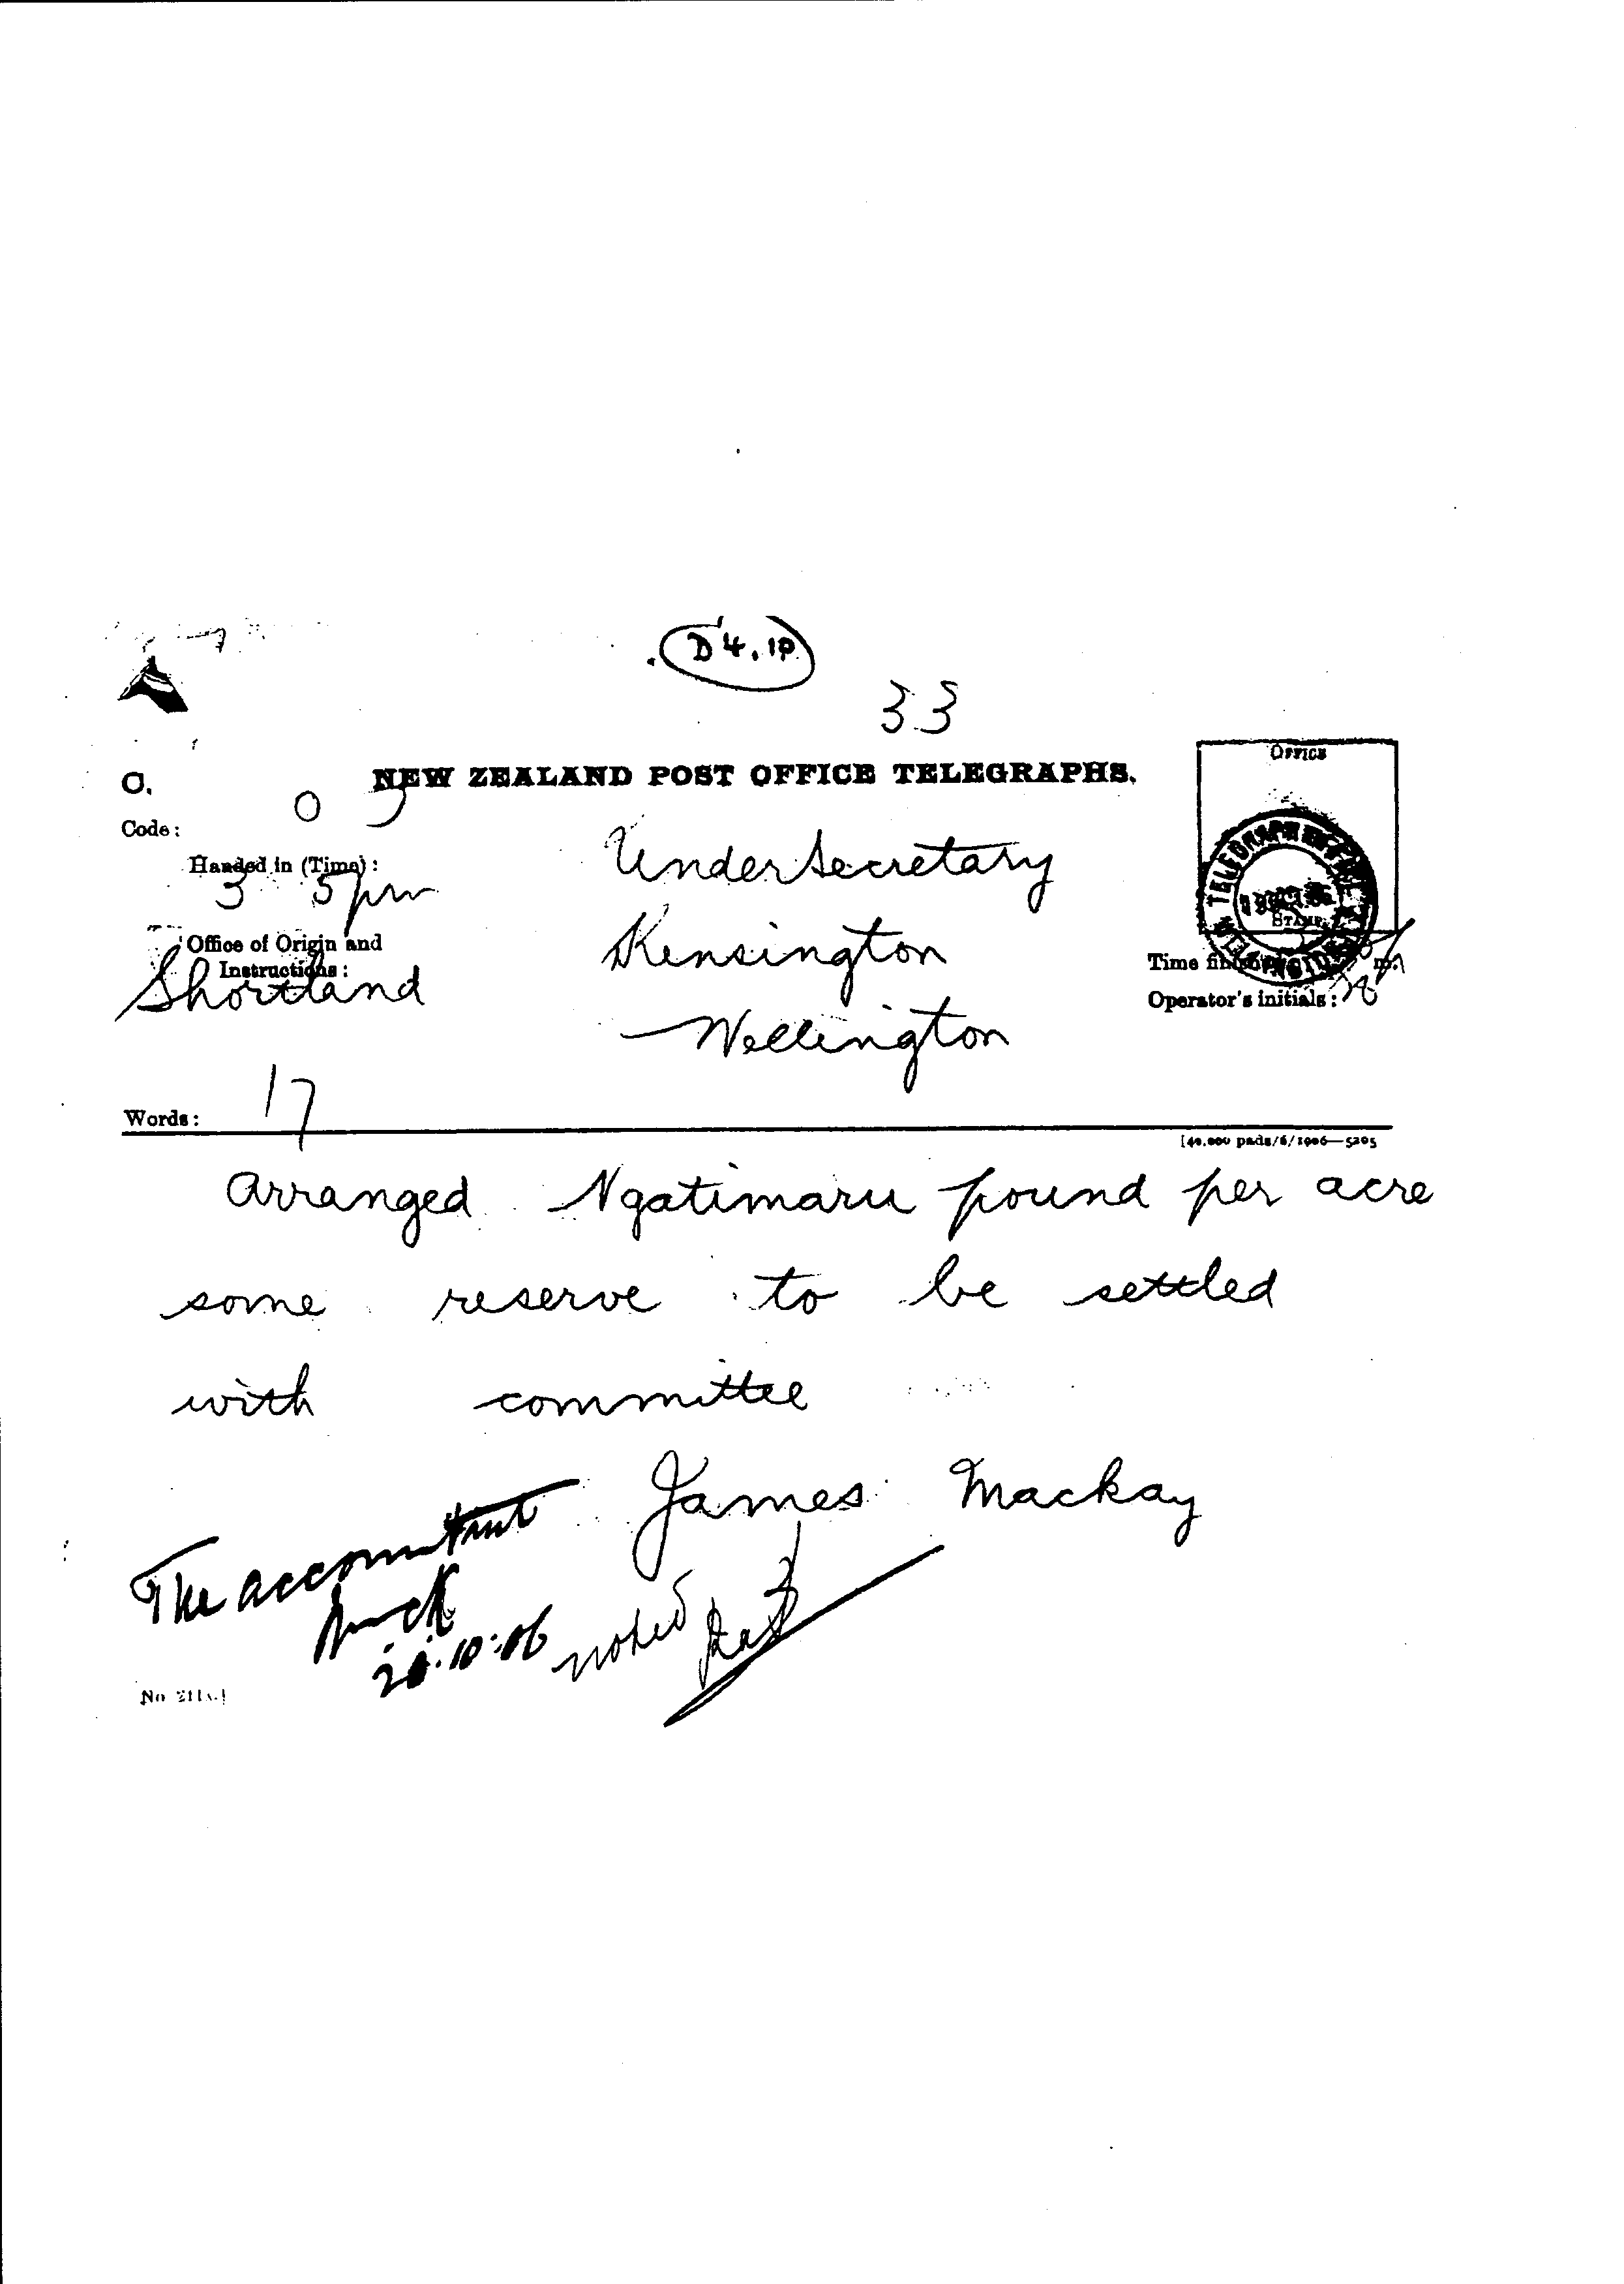 D4.1P
33
O.
NEW ZEALAND POST OFFICE TELEGRAPHS.
OFFICE
Code:
Handed in (Time):
3 5 pm
Under Secretary
Office of Origin and
Instructions:
Shortland
Kensington
Wellington
STAMP.
Time
Operator's initials:
Words: 17
[40,000 pads/6/1906—5205
Arranged Ngatimaru pound per acre
some reserve to be settled
with committee
James Mackay
The accountant
20.10.06
noted
No